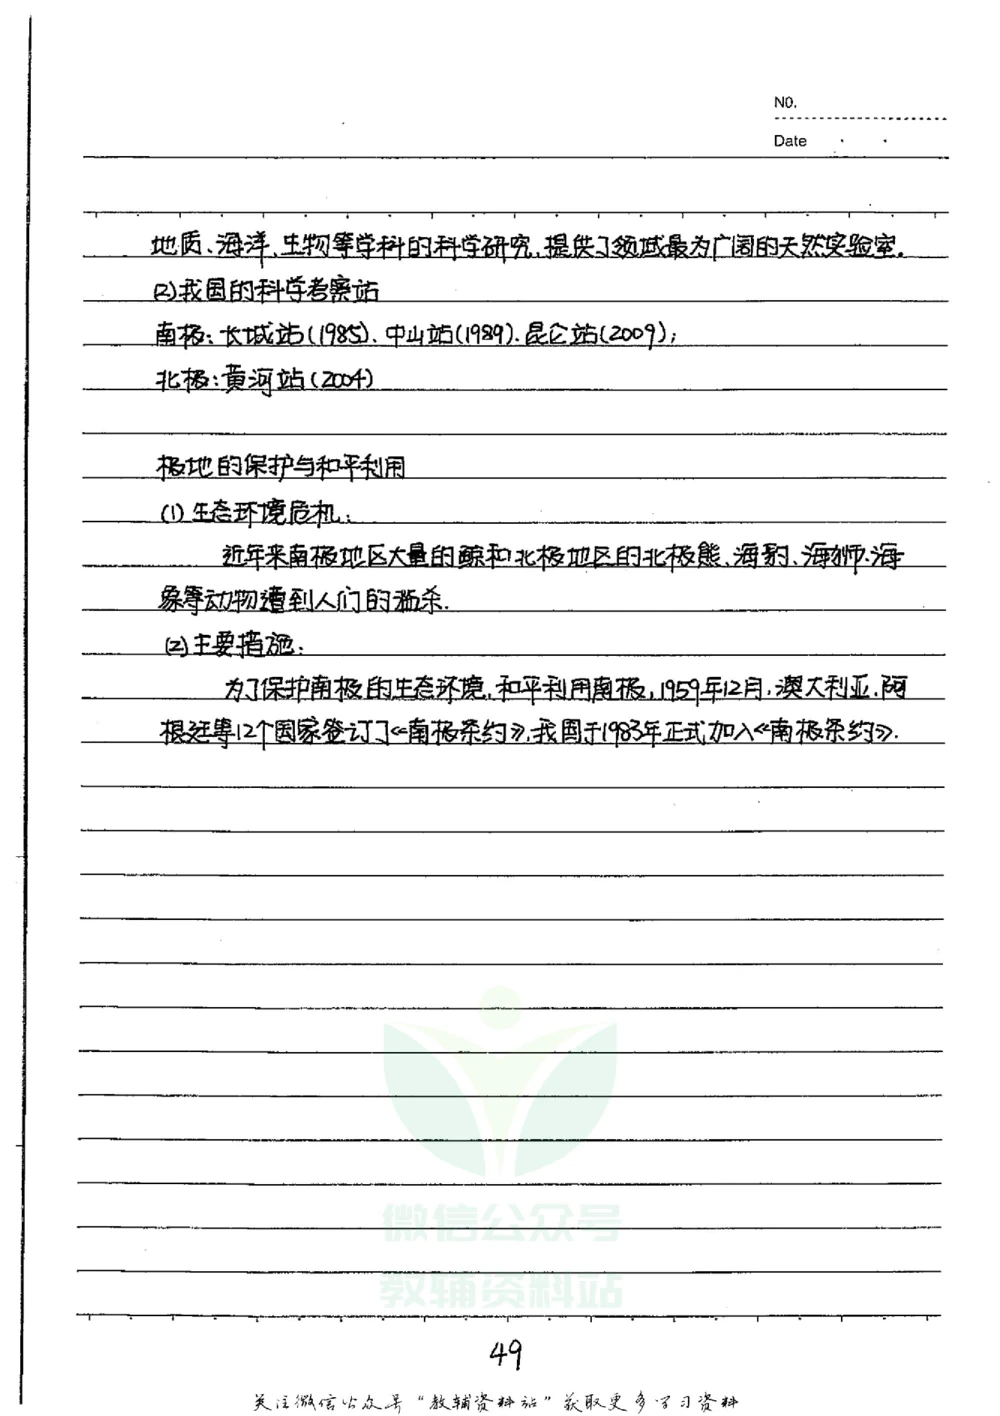 NO.
Date
地质、海洋、生物等学科的科学研究,提供了领域最为广阔的天然实验室.
(2)我国的科学考察站
南极:长城站(1985)、中山站(1989).昆仑站(2009);
北极:黄河站(2004)
极地的保护与和平利用
(1)生态环境危机:
近年来南极地区大量的鲸和北极地区的北极熊、海豹、海狮.海
象等动物遭到人们的滥杀.
(2)主要措施:
为了保护南极的生态环境,和平利用南极,1959年12月,澳大利亚.阿
根廷等12个国家签订了《南极条约》,我国于1983年正式加入《南极条约》.
微信公众号
教辅资料站
49
关注微信公众号“教辅资料站”获取更多学习资料